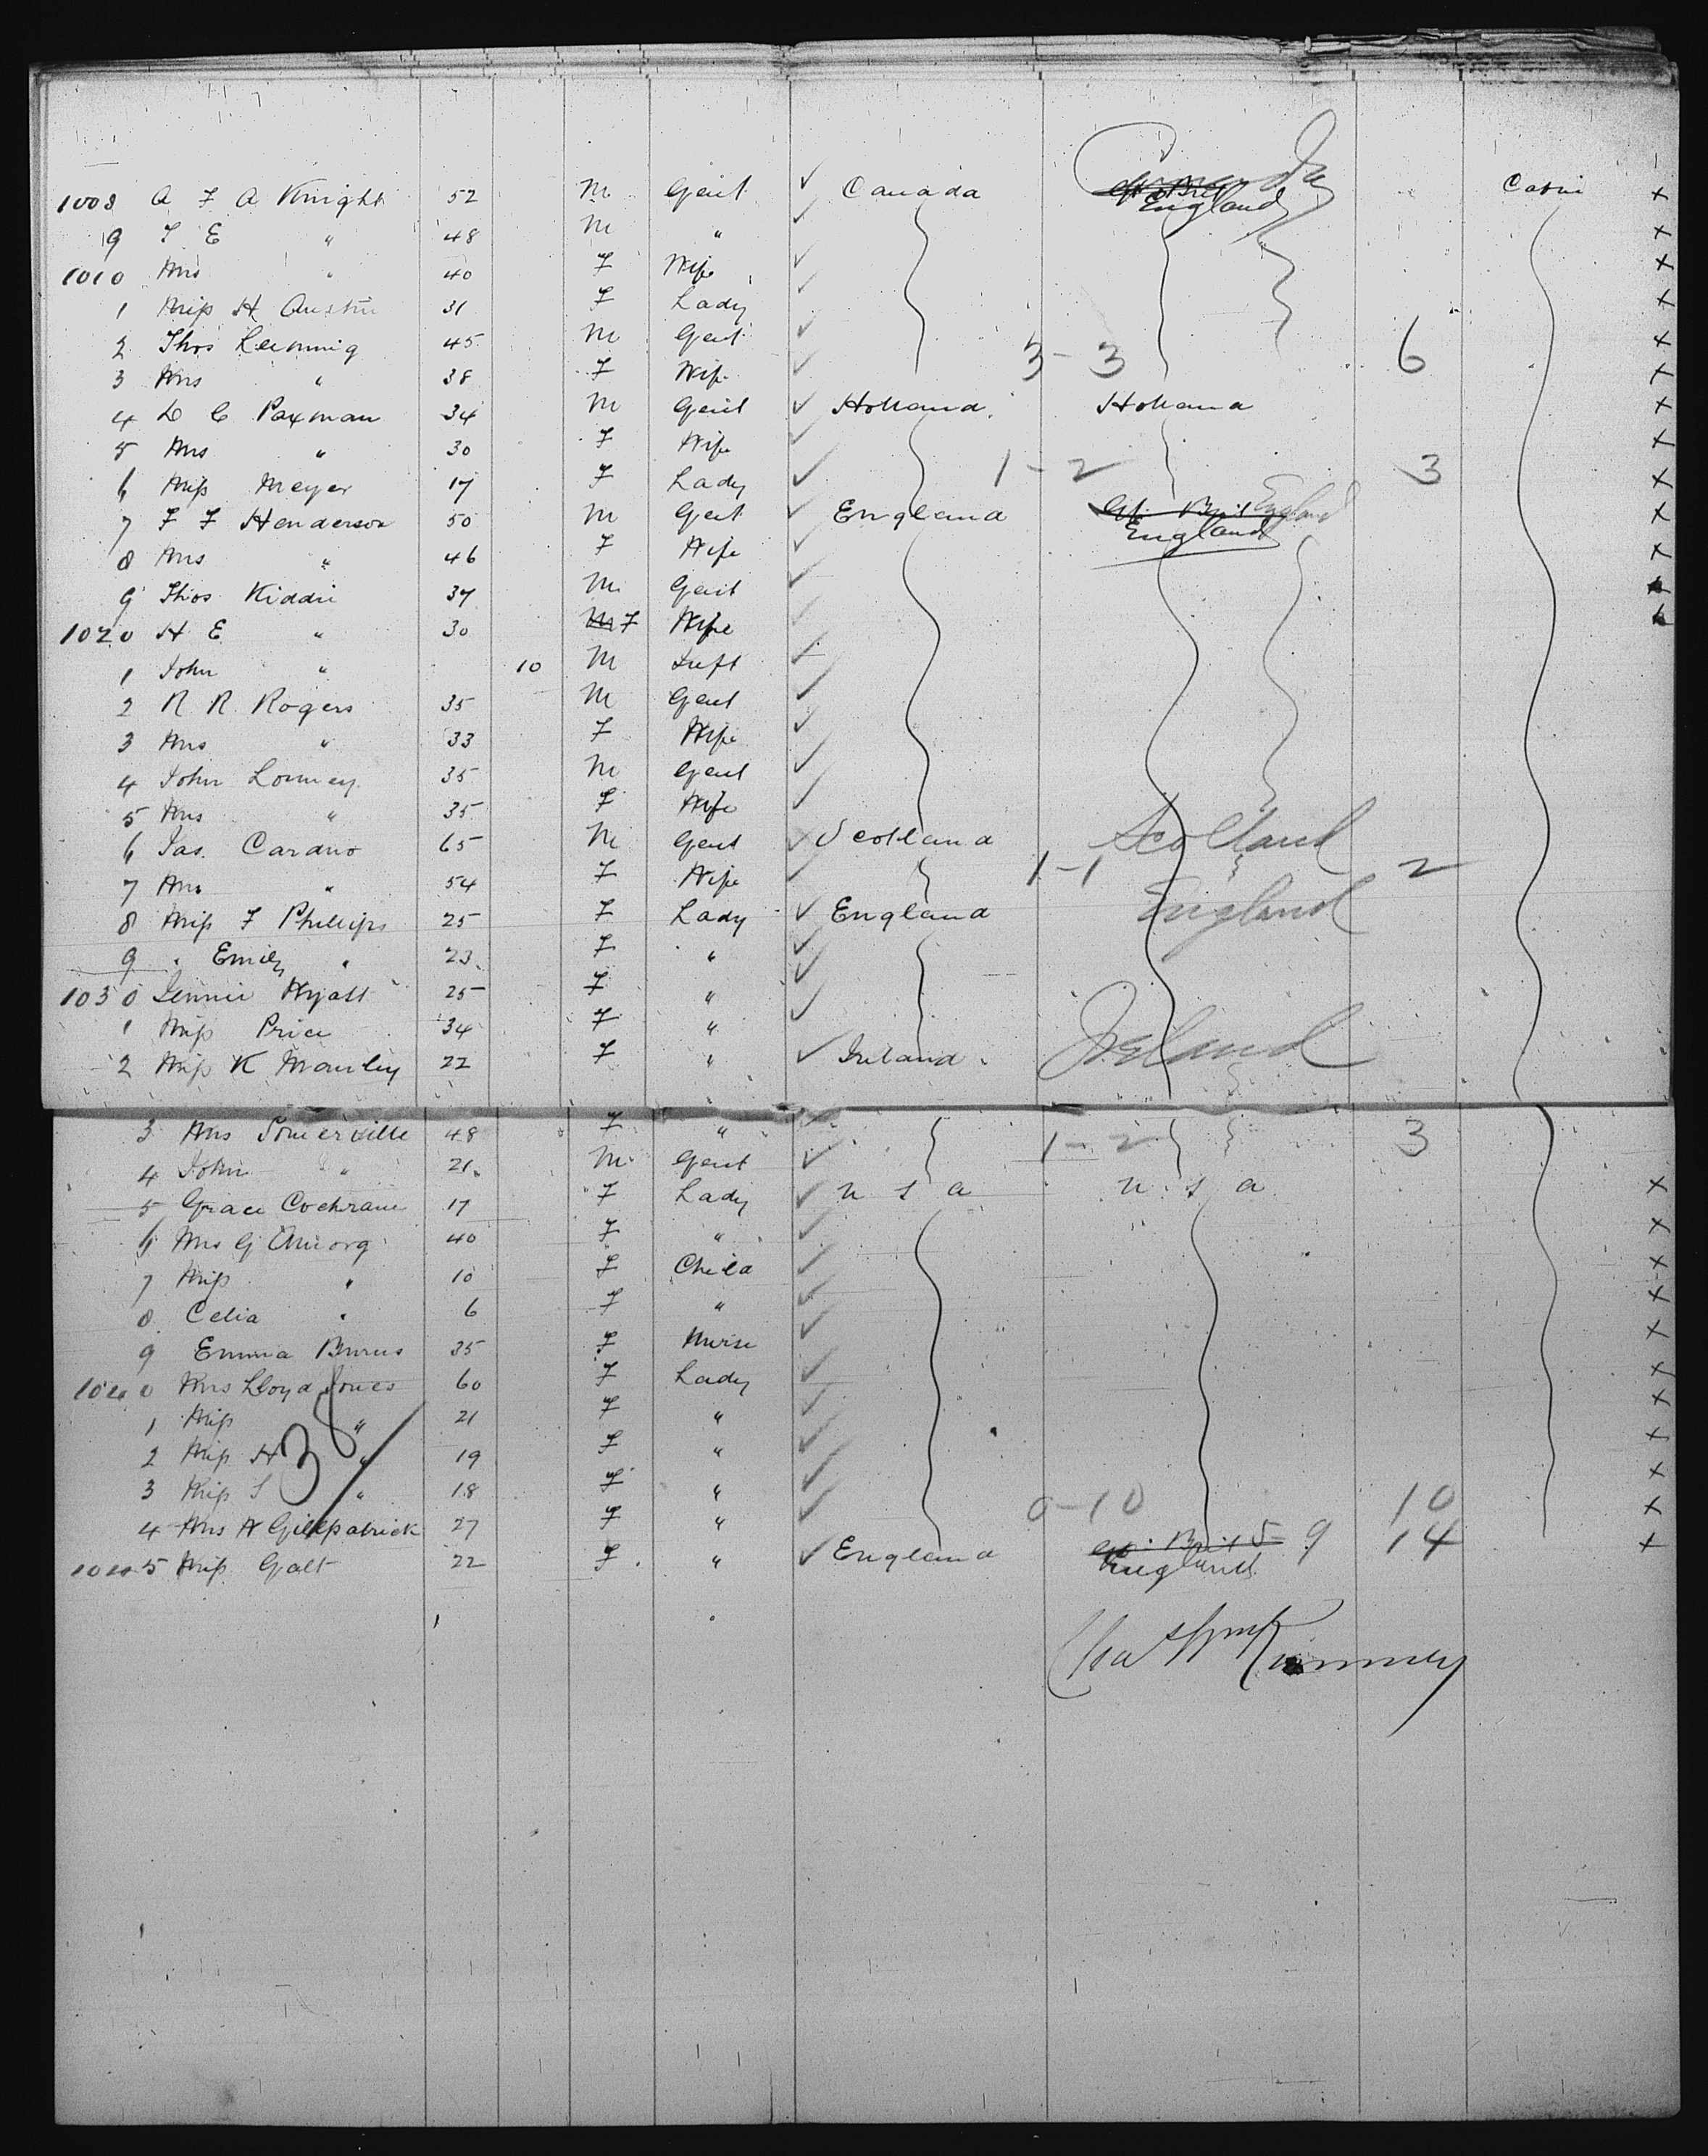 1008 A F A Knight 52 M Gent ✓ Canada Canada Gt Brit England Cabin x
9 T E " 48 M " ✓ x
1010 Mrs " 40 F Wife ✓ x
1 Miss H Austin 31 F Lady ✓ x
2 Thos Leeming 45 M Gent ✓ x
3 Mrs " 38 F Wife ✓ 3-3 6 x
4 D C Paxman 34 M Gent ✓ Holland Holland x
5 Mrs " 30 F Wife ✓ x
6 Miss Meyer 17 F Lady ✓ 1-2 3 x
7 F F Henderson 50 M Gent ✓ England Gt Brit England England x
8 Mrs " 46 F Wife ✓ x
9 Thos Kiddie 37 M Gent ✓
1020 H E " 30 M F Wife ✓
1 John " 10 M Inft ✓
2 R R Rogers 35 M Gent ✓
3 Mrs " 33 F Wife ✓
4 John 35 M Gent ✓
5 Mrs " 35 F Wife ✓
6 Jas. 65 M Gent ✓ Scotland Scotland
7 Mrs " 54 F Wife ✓ 1-1 2
8 Miss F Phillips 25 F Lady ✓ England England
9 " Emily " 23 F " ✓
1030 Jennie Wyatt 25 F " ✓
1 Miss Price 34 F " ✓
2 Miss K Manley 22 F " ✓ Ireland Ireland
3 Mrs Somerville 48 F " ✓
4 John " 21 M Gent ✓ 1-2 3
5 Grace Cochrane 17 F Lady ✓ U S A U S A x
6 Mrs G 40 F " ✓ x
7 Miss " 10 F Child ✓ x
8 Celia " 6 F " ✓ x
9 Emma Burns 35 F Nurse ✓ x
1040 Mrs Lloyd Jones 60 F Lady ✓ x
1 Miss " 21 F " ✓ x
2 Miss H " 19 F " ✓ x
38
3 Miss S " 18 F " ✓ x
4 Mrs A Gillpatrick 27 F " ✓ 0-10 10 x
1045 Miss Galt 22 F " ✓ England Gt Brit England 5 9 14 x